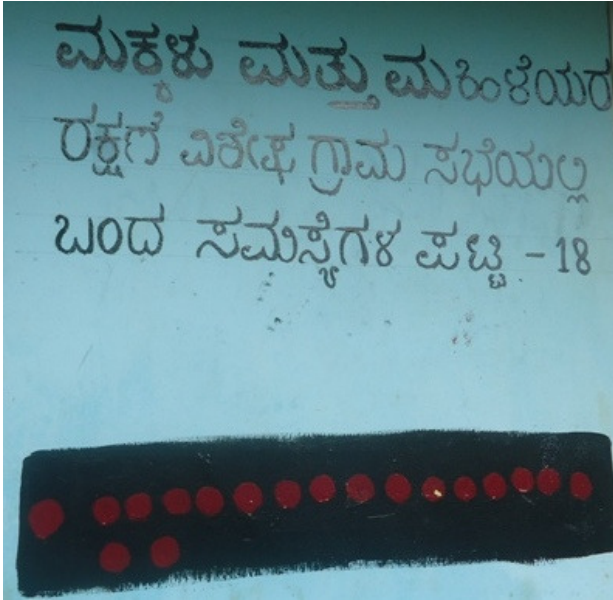 ಮಕ್ಕಳು ಮತ್ತು ಮಹಿಳೆಯರ
ರಕ್ಷಣೆ ವಿಶೇಷ ಗ್ರಾಮ ಸಭೆಯಲ್ಲಿ
ಬಂದ ಸಮಸ್ಯೆಗಳ ಪಟ್ಟಿ - 18